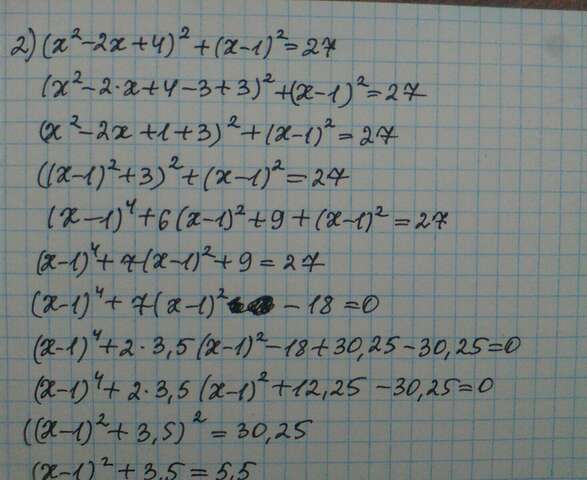 2) (x²-2x+4)²+(x-1)²=27
(x²-2·x+4-3+3)²+(x-1)²=27
(x²-2x+1+3)²+(x-1)²=27
((x-1)²+3)²+(x-1)²=27
(x-1)⁴+6(x-1)²+9+(x-1)²=27
(x-1)⁴+7(x-1)²+9=27
(x-1)⁴+7(x-1)² -18=0
(x-1)⁴+2·3,5(x-1)²-18+30,25-30,25=0
(x-1)⁴+2·3,5(x-1)²+12,25-30,25=0
((x-1)²+3,5)²=30,25
(x-1)²+3,5=5,5